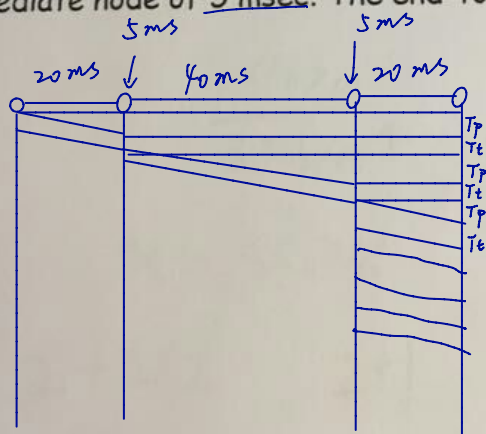 ediate node of 5 msec. The end
5ms 5ms
20ms 40ms 20ms
Tp
Tt
Tp
Tt
Tp
Tt